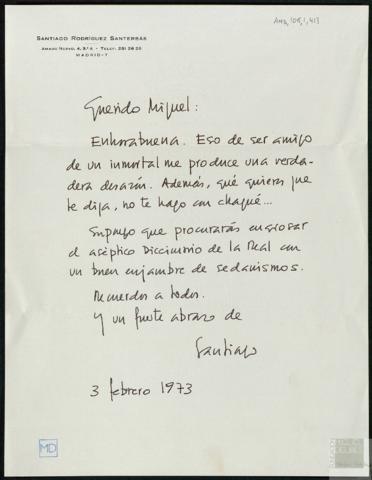 SANTIAGO RODRÍGUEZ SANTERBÁS
MADRID-7
Querido Miguel:
Enhorabuena. Eso de ser amigo
de un inmortal me produce una verda-
dera desazón. Además, qué quieres que
te diga, no te hago con chaqué...
Supongo que procurarás engrosar
el aséptico Diccionario de la Real con
un buen enjambre de sedanismos.
Recuerdos a todos.
Y un fuerte abrazo de
Santiago
3 febrero 1973
MD